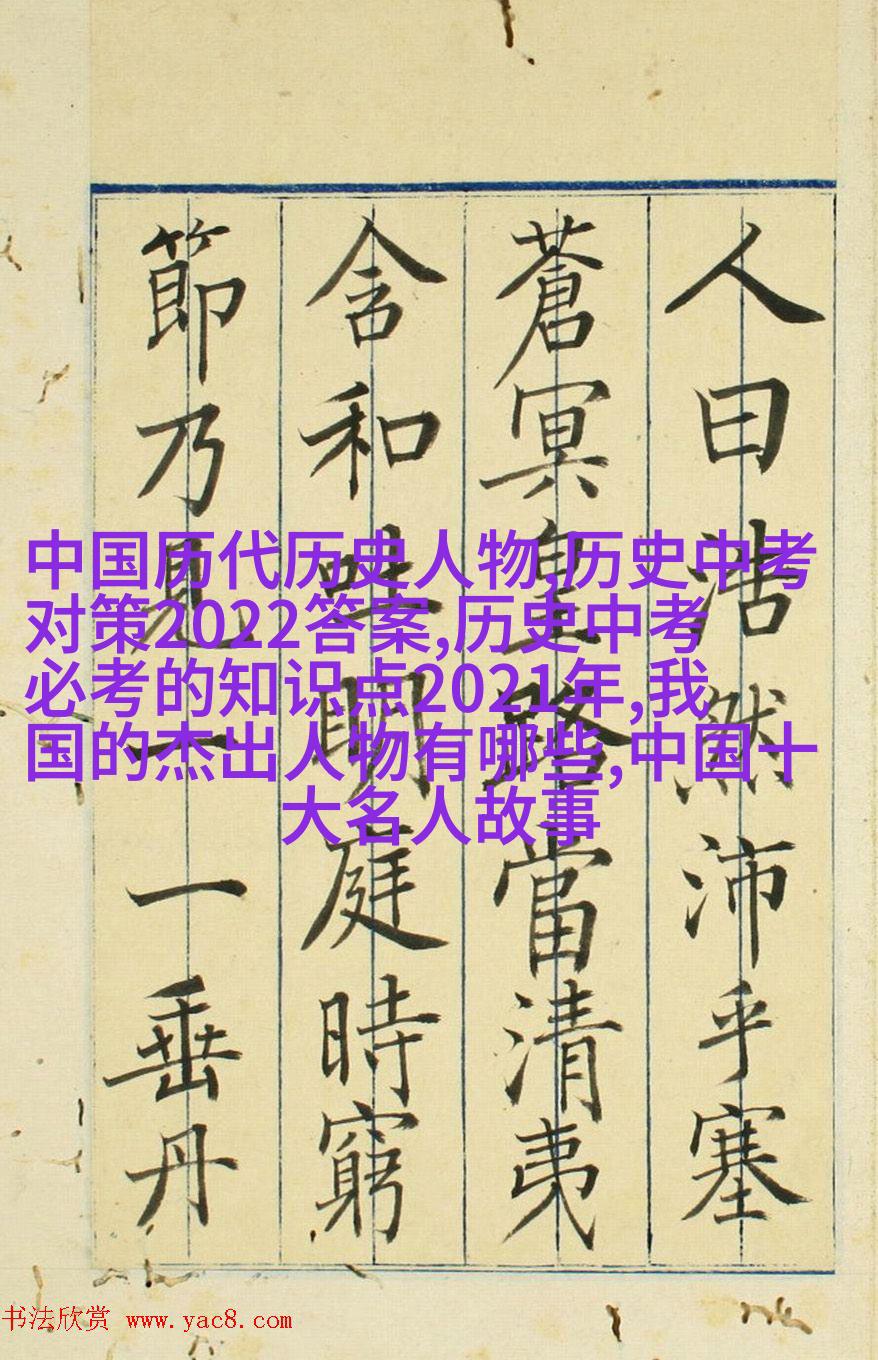 人曰浩然沛乎塞
蒼冥皇路當清夷
含和吐明庭時窮
節乃見一一垂丹
中国历代历史人物,历史中考
对策2022答案,历史中考
必考的知识点2021年,我
国的杰出人物有哪些,中国十
大名人故事
书法欣赏 www.yac8.com